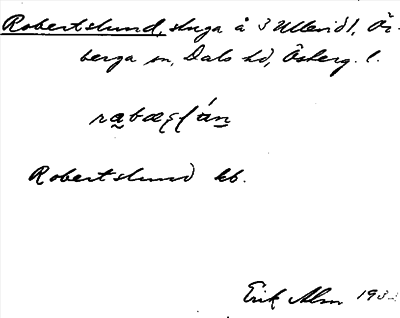 Robertslund, stuga å 3 Ullevid, Ör-
berga sn, Dals hd, Österg. l.
Robertslund kb.
Erik Alm 193